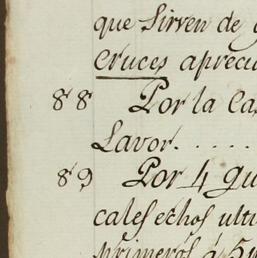 que Sirven de
Cruces apreciu
88 Por la Ca
Lavor. . . . .
89 Por 4 gu
cales echos ulti
primeros à 5